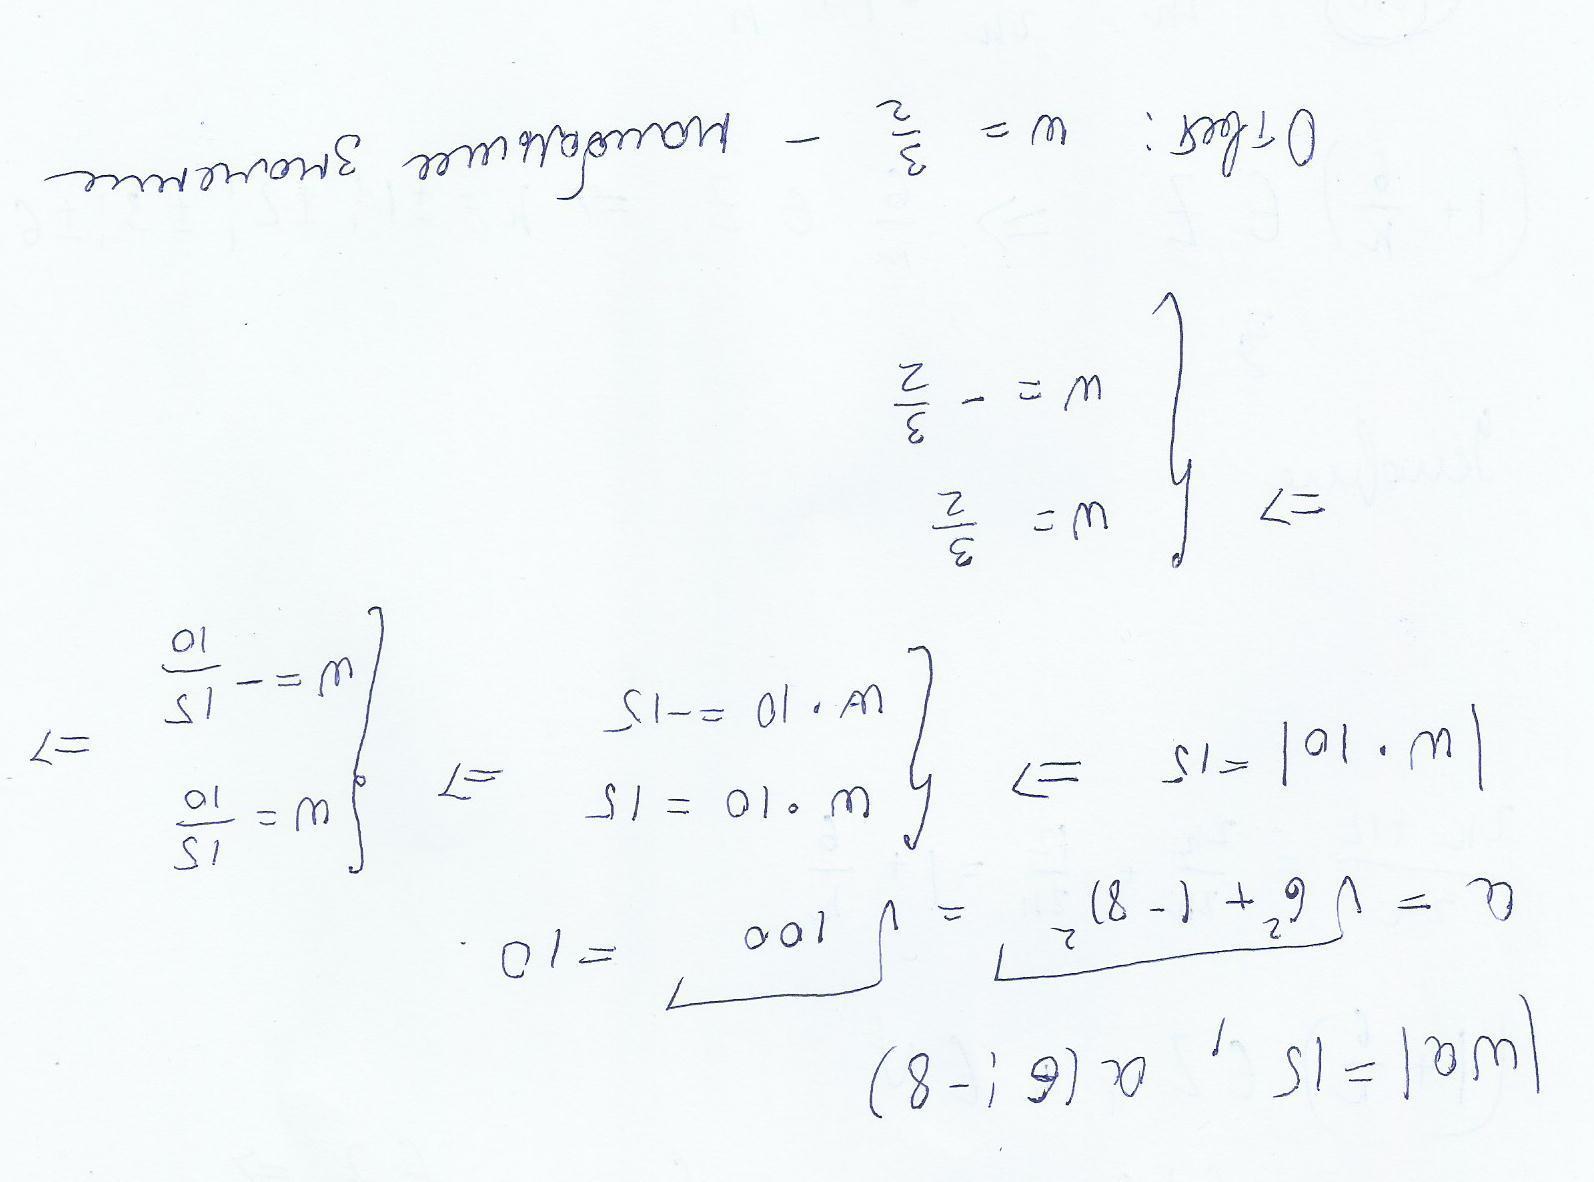 |wa| = 15, a(6; -8)
a = √6² + (-8)² = √100 = 10.
|w · 10| = 15 => { w · 10 = 15 w · 10 = -15 => { w = 15/10 w = - 15/10 =>
=> { w = 3/2
w = - 3/2
Ответ: w = 3/2 - наибольшее значение